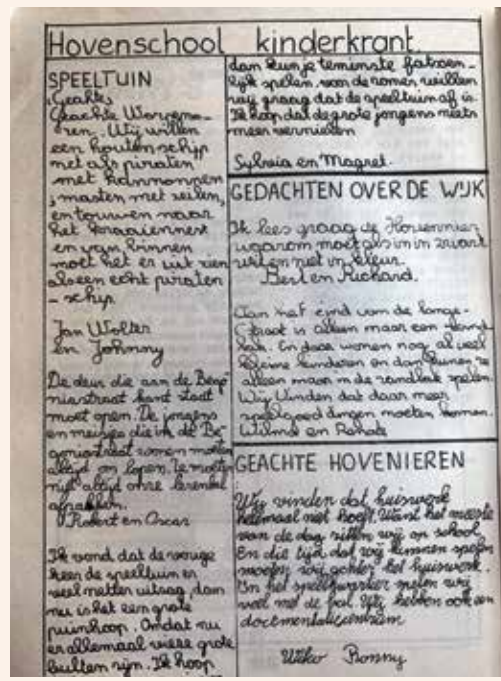 Hovenschool kinderkrant.
SPEELTUIN
Geachte
Geachte Worvene-
ren. Wij willen
een houten schip
met als piraten
met kannonnen
, masten met zeilen,
en touwen naar
het kraaiennest
en van binnen
moet het er uit zien
als een echt piraten
- schip.
Jan Wolter
en Johnny
De deur die aan de Bego
niastraat kant staat
moet open. De jongens
en meisjes die in de Be
goniastraat wonen moeten
altijd om lopen. Ze moeten
niet altijd onze
afpakken.
Robert en Oscar
Ik vond dat de vorige
keer de speeltuin er
veel netter uitzag, dan
nu is het een grote
puinhoop. Omdat nu
er allemaal vieze grote
bulten zijn. Ik hoop
dan kun je teminste fatsoen-
lijk spelen, voor de zomer willen
wij graag dat de speeltuin af is.
Ik hoop dat de grote jongens niets
meer vernielen
Sylvia en Magret.
GEDACHTEN OVER DE WIJK
Ik lees graag de Hovennier
waarom moet als in in zwart
wit en niet in kleur.
Bert en Richard.
Aan het eind van de lange-
straat is alleen maar een zand-
bak. En daar wonen nog al veel
kleine kinderen en dan kunnen ze
alleen maar in de zandbak spelen.
Wij vinden dat daar meer
speelgoed dingen moeten komen.
Wilma en
GEACHTE HOVENIEREN
Wij vinden dat huiswerk
helemaal niet hoeft. Want het meeste
van de dag zitten wij op school.
En die tijd dat wij kunnen spelen
moeten wij achter het huiswerk.
In het speelkwartier spelen wij
veel met de bal. Wij hebben ook een
documentatiecentrum
Wilko Ronny